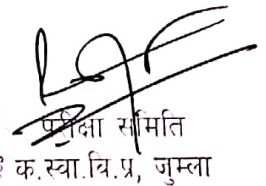 परीक्षा समिति
क.स्वा.वि.प्र, जुम्ला